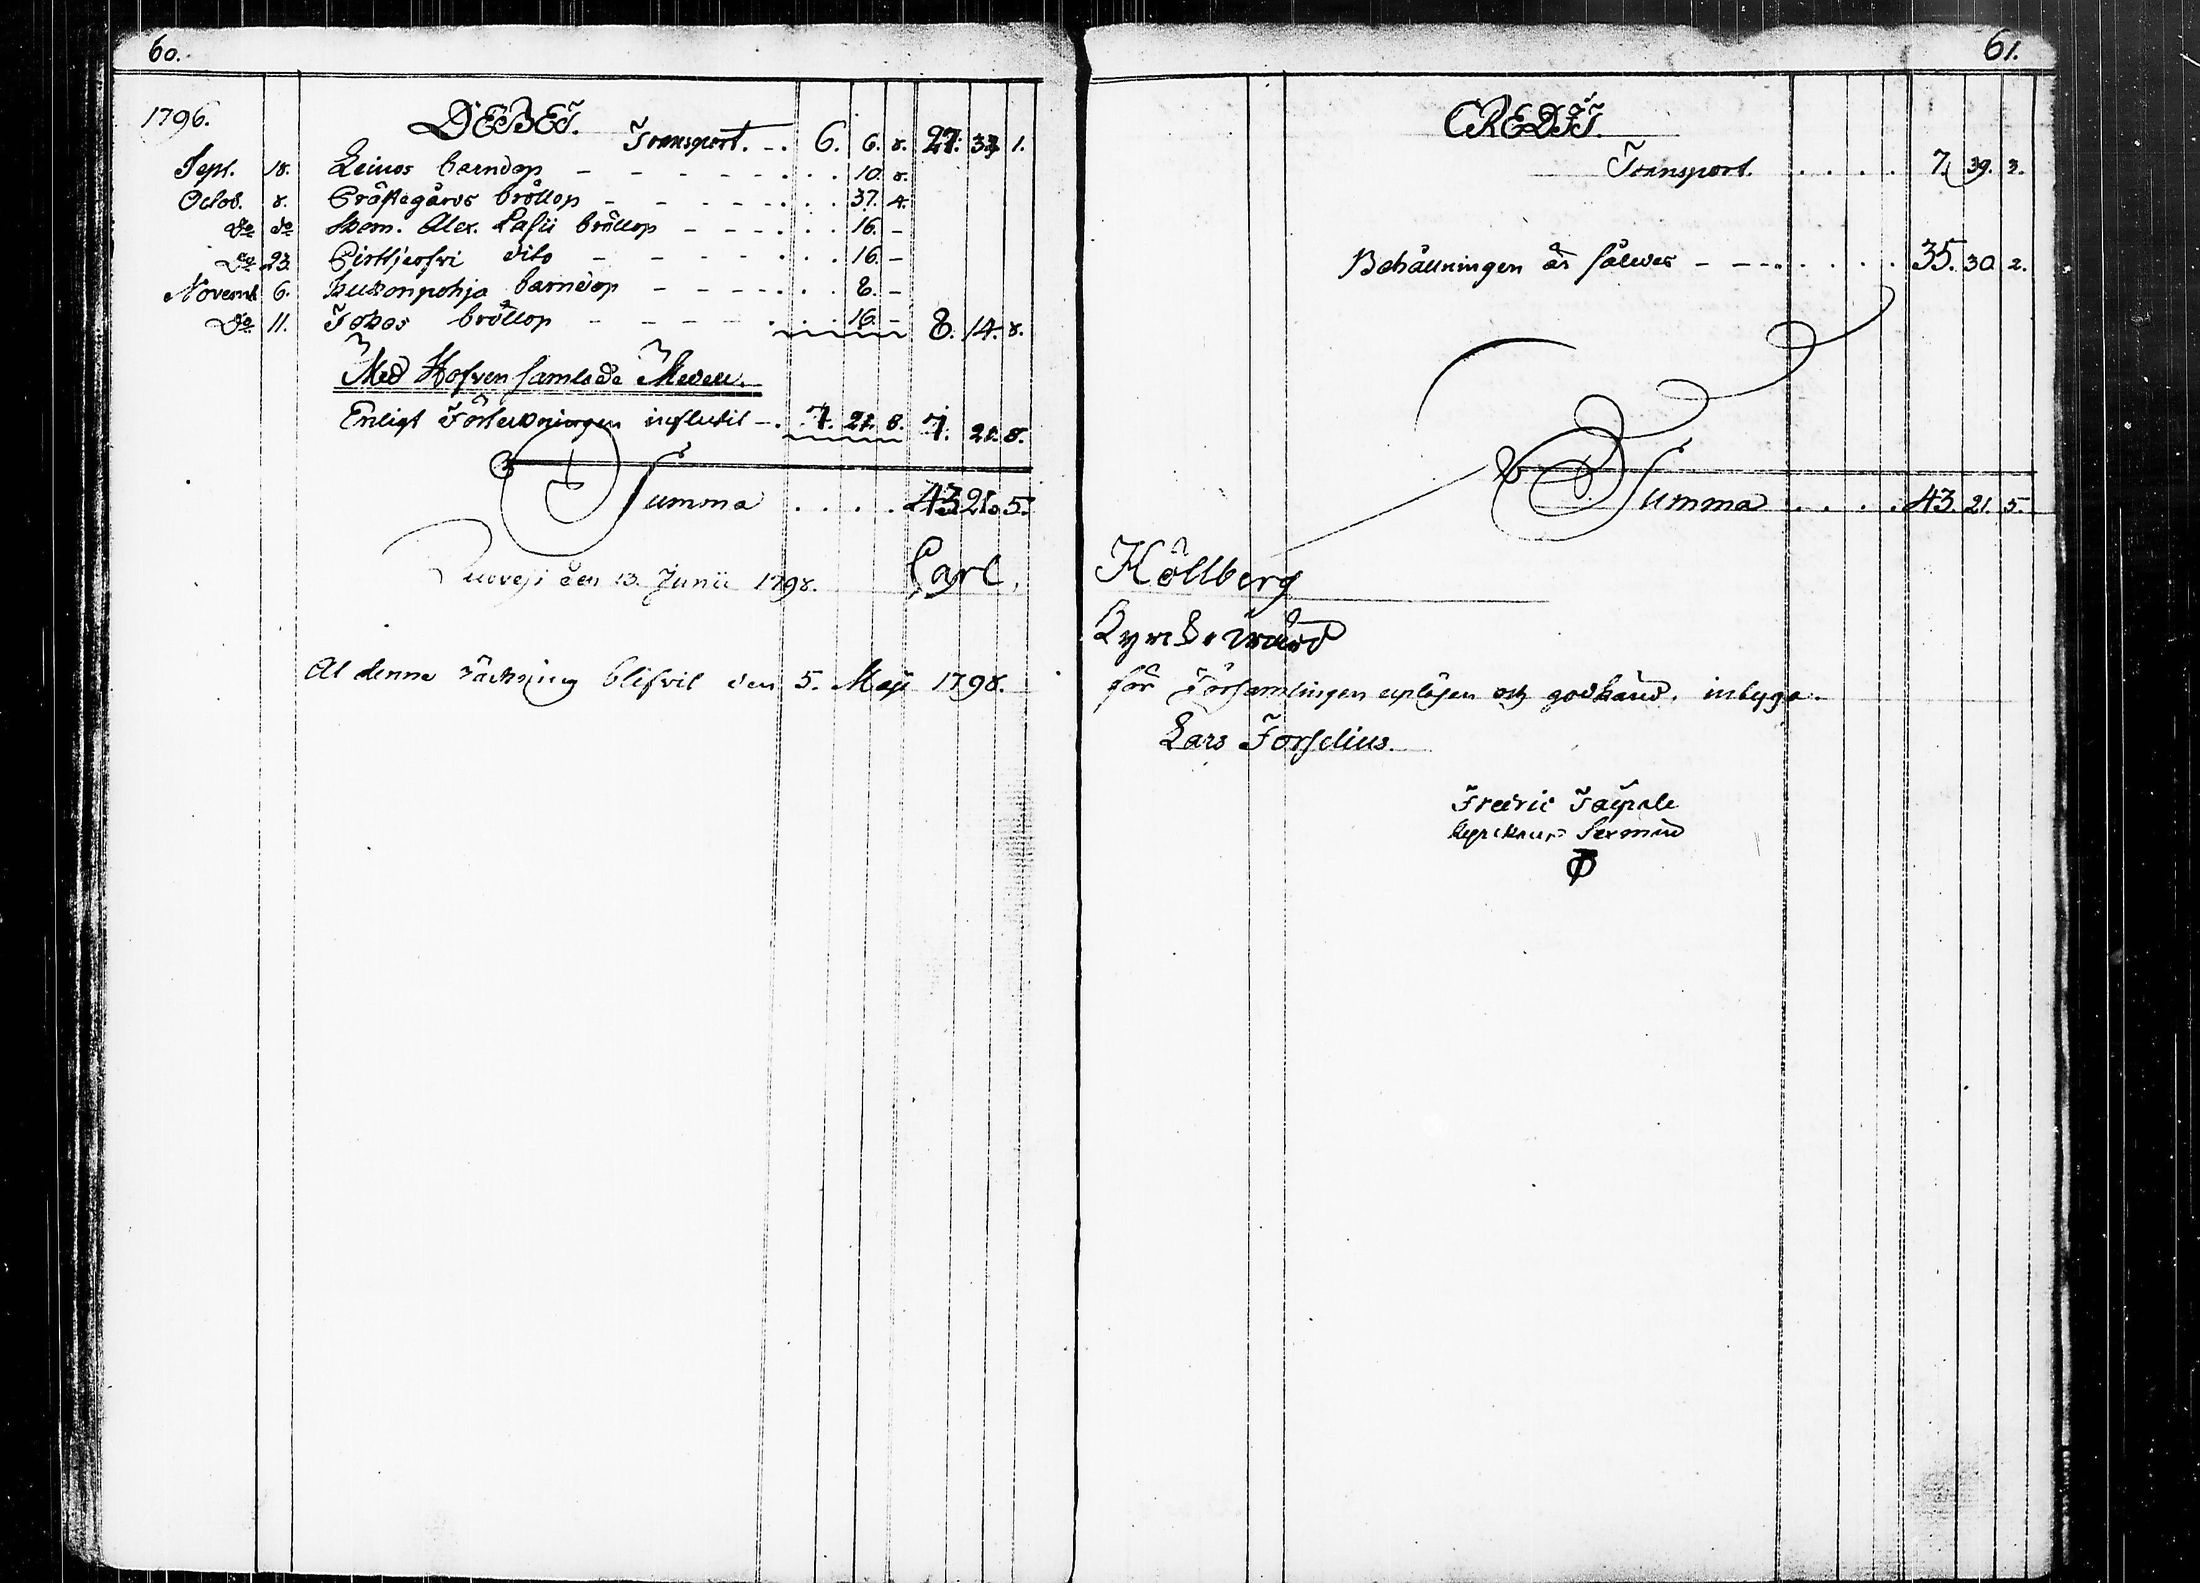 60.
1796. DEBET.
Transport. - . 6. 6. 8. 27. 33. 1.
Sept. 18. Leinos barndop - - - - - . . . 10. 8.
Octob. 8. Prästegårds bröllop - - - - - . . . 37. 4.
Do do Alex. bröllop - - - . . . 16. -
Do 23. Pirttjerfvi dito - - - - . . . 16. -
Novemb 6. barndop - - - - . . . 8. -
Do 11. bröllop - - - - - . . . 16. - 8. 14. 8.
Med Hofven samlade Medell.
Enligt Förteckningen influtit - . 7. 21. 8. 7. 21. 8.
Summa . . . . 43. 21. 5.
Ruovesi den 13. Junii 1798. Carl.
At denna räckning blifvit den 5. Maji 1798.
61.
CREDIT.
Transport. . . . . 7. 39. 3.
Behållningen är således - - - . . . . 35. 30. 2.
Summa . . . . 43. 21. 5.
Höllberg
Kyrckovärd
för Församlingen upläsen och godkänd, intyga.
Lars Forselius.
Fredric